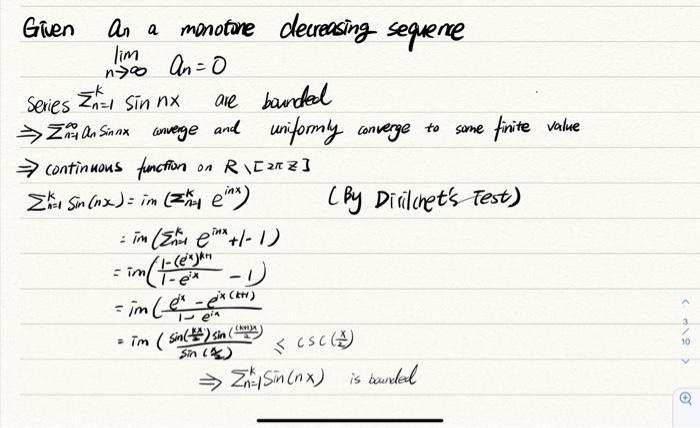 Given an a monotone decreasing sequence
lim n→∞ an = 0
Series Σ_{n=1}^k sin nx are bounded
⇒ Σ_{n=1}^∞ an sin nx converge and uniformly converge to some finite value
⇒ continuous function on R \ [2π Z]
Σ_{n=1}^k sin(nx) = im (Σ_{n=1}^k e^{inx}) (By Dirilchet's Test)
= im (Σ_{n=1}^k e^{inx} + 1 - 1)
= im (\frac{1-(e^{ix})^{k+1}}{1-e^{ix}} - 1)
= im (\frac{e^{ix} - e^{ix(k+1)}}{1-e^{ix}})
= im (\frac{sin(\frac{kx}{2}) sin(\frac{(k+1)x}{2})}{sin(\frac{x}{2})}) ≤ csc(\frac{x}{2})
⇒ Σ_{n=1}^k sin(nx) is bounded
3
/
10